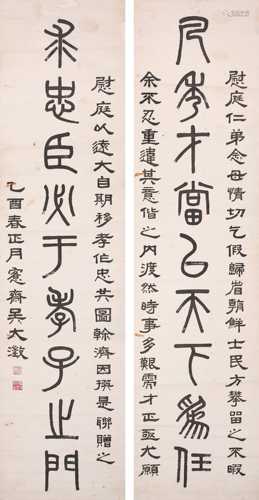 凡秀才當㠯天下為任
慰庭仁弟念母情切乞假歸省朝鮮士民方攀留之不暇
余不忍重違其意偕之內渡然時事多艱需才正亟尤願
求忠臣必于孝子之門
慰庭以遠大自期移孝作忠共圖榦濟因撰是聯贈之
乙酉春正月愙齋吳大澂